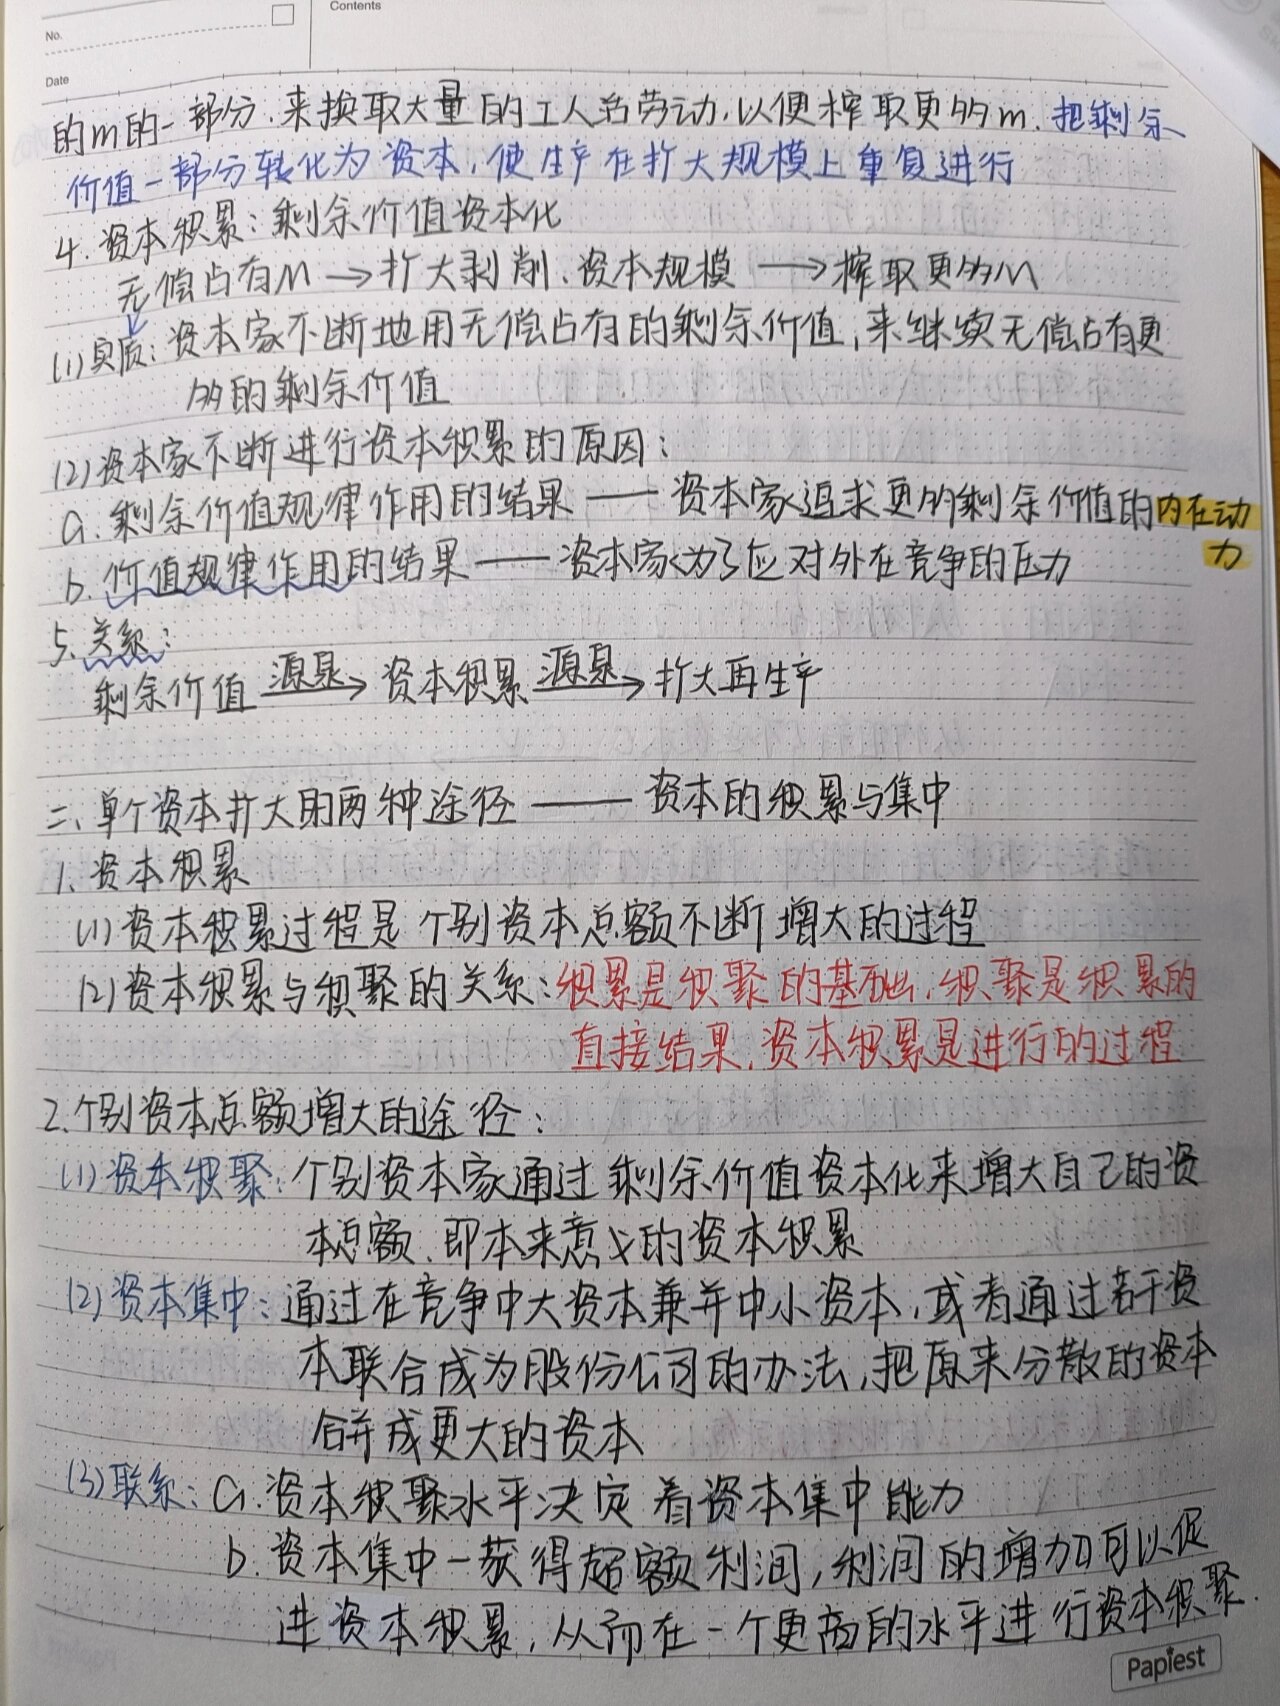 No.
Contents
Date
的m的一部分.来换取大量的工人活劳动,以便榨取更多m.把剩余
价值一部分转化为资本,使生产在扩大规模上重复进行
4.资本积累:剩余价值资本化
无偿占有m→扩大剥削、资本规模→榨取更多m
(1)实质:资本家不断地用无偿占有的剩余价值,来继续无偿占有更
多的剩余价值
(2)资本家不断进行资本积累的原因:
a.剩余价值规律作用的结果——资本家追求更多剩余价值的内在动
力
b.价值规律作用的结果——资本家为了应对外在竞争的压力
5.关系:
剩余价值 源泉→ 资本积累 源泉→ 扩大再生产
二、单个资本扩大的两种途径——资本的积累与集中
1.资本积累
(1)资本积累过程是个别资本总额不断增大的过程
(2)资本积累与积聚的关系:积累是积聚的基础,积聚是积累的
直接结果,资本积累是进行的过程
2.个别资本总额增大的途径:
(1)资本积聚:个别资本家通过剩余价值资本化来增大自己的资
本总额、即本来意义的资本积累
(2)资本集中:通过在竞争中大资本兼并中小资本,或者通过若干资
本联合成为股份公司的办法,把原来分散的资本
合并成更大的资本
(3)联系:a.资本积聚水平决定着资本集中能力
b.资本集中一获得超额利润,利润的增加可以促
进资本积累,从而在一个更高的水平进行资本积聚.
Papiest